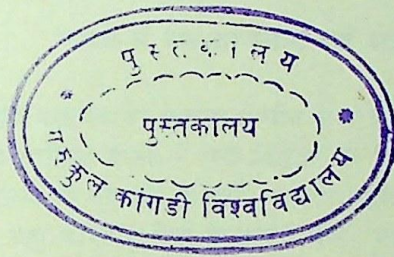 पुस्तकालय
पुस्तकालय
गुरुकुल कांगडी विश्वविद्यालय